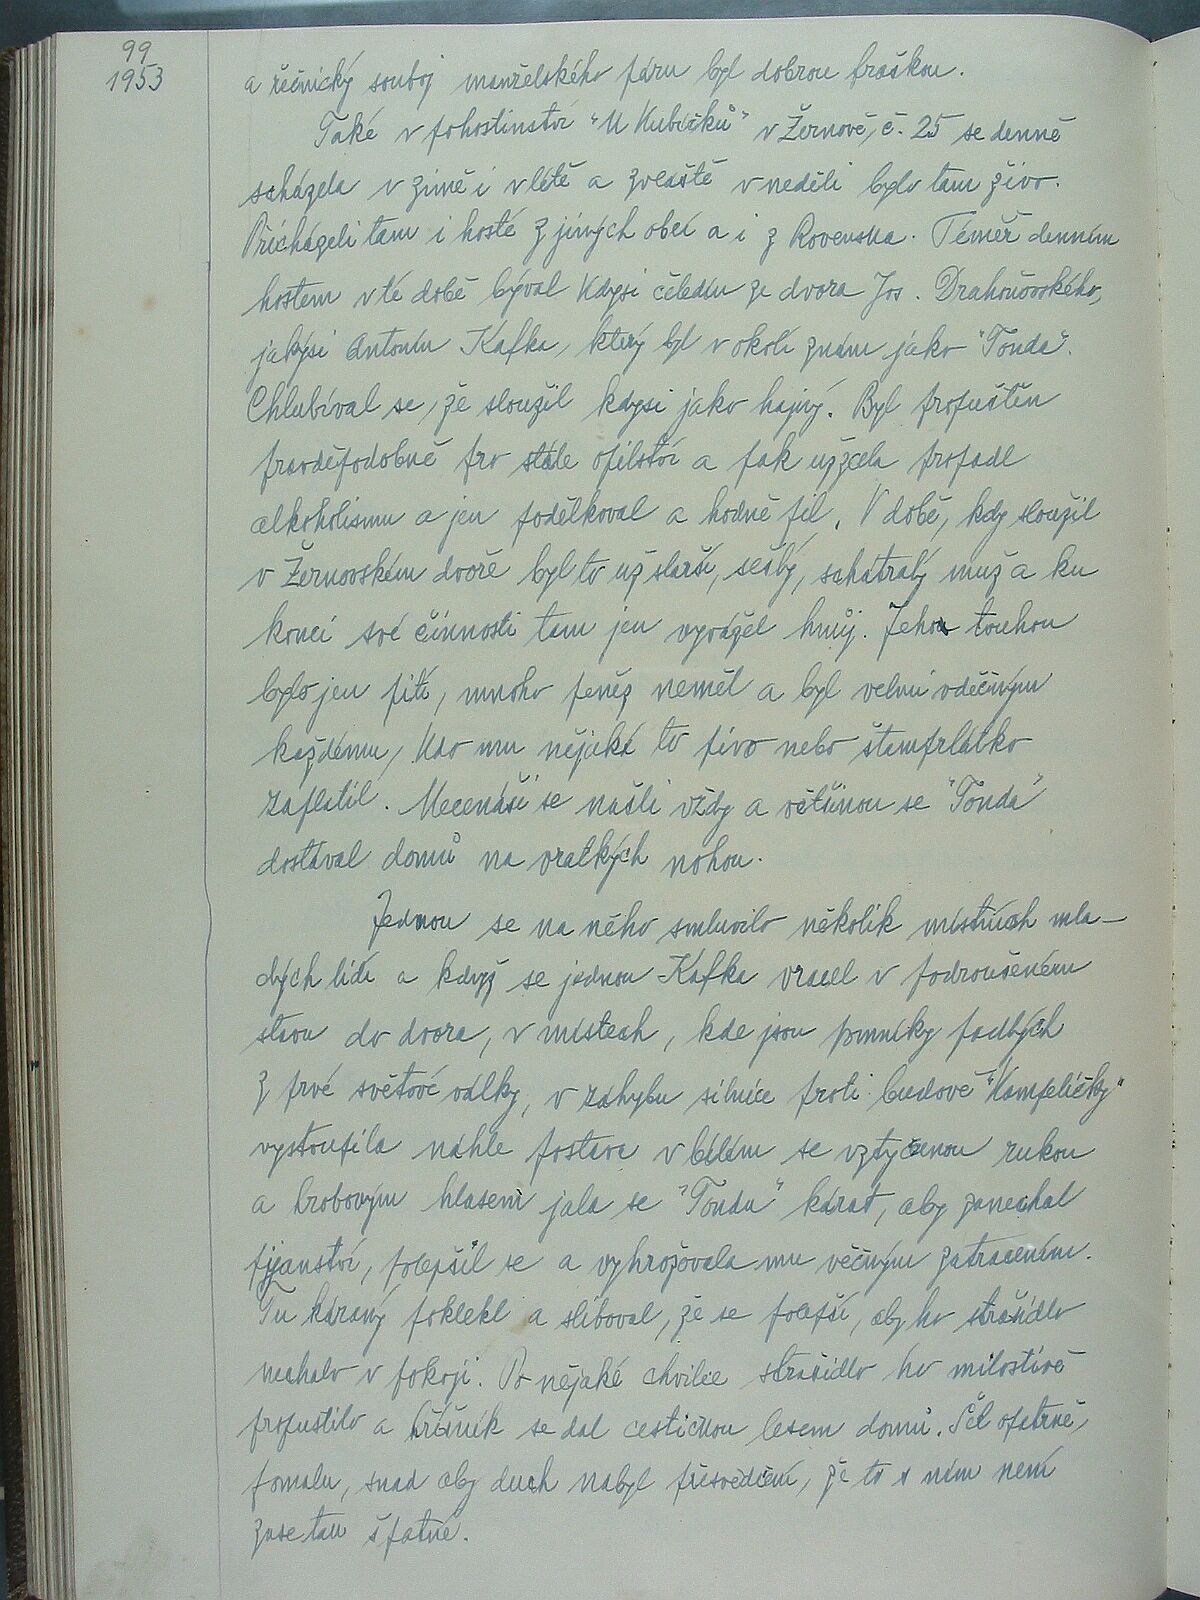 99
1953
a řečnický souboj manželského páru byl dobrou fraškou.
Také v pohostinství "U Kubíčků" v Žernově, č. 25 se denně
scházela v zimě i v létě a zvláště v neděli bylo tam živo.
Přicházeli tam i hosté z jiných obcí a i z Rovenska. Téměř denním
hostem v té době býval kdysi čeledín ze dvora Jos. Drahoňovského,
jakýsi Antonín Kafka, který byl v okolí znám jako "Tonda".
Chlubíval se, že sloužil kdysi jako hajný. Byl propuštěn
pravděpodobně pro stálé opilství a pak už zcela propadl
alkoholismu a jen podělkoval a hodně pil. V době, kdy sloužil
v Žernovském dvoře byl to už starší, sešlý, schátralý muž a ku
konci své činnosti tam jen vyvážel hnůj. Jeho touhou
bylo jen pití, mnoho peněz neměl a byl velmi vděčným
každému, kdo mu nějaké to pivo nebo štamprlátko
zaplatil. Mecenáši se našli vždy a většinou se "Tonda"
dostával domů na vratkých nohou.
Jednou se na něho smluvilo několik místních mla-
dých lidí a když se jednou Kafka vracel v podroušeném
stavu do dvora, v místech, kde jsou pomníky padlých
z prvé světové války, v záhybu silnice proti budově "Kampeličky"
vystoupila náhle postava v bílém se vztyčenou rukou
a hrobovým hlasem jala se "Tondu" kárat, aby zanechal
pijanství, polepšil se a vyhrožovala mu věčným zatracením.
Tu káraný poklekl a sliboval, že se polepší, aby ho strašidlo
nechalo v pokoji. Po nějaké chvilce strašidlo ho milostivě
propustilo a hříšník se dal cestičkou lesem domů. Šel opatrně,
pomalu, snad aby duch nabyl přesvědčení, že to s ním není
zase tak špatné.